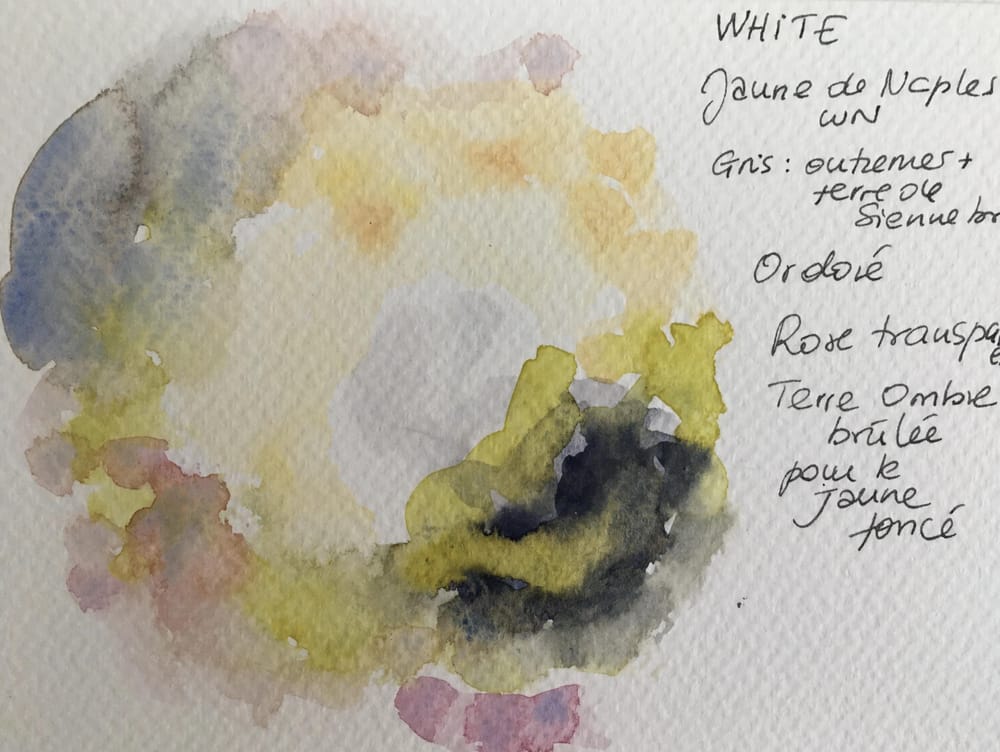 WHITE
Jaune de Naples
WN
Gris : outremer +
terre de
Sienne br
Or doré
Rose transpa
Terre Ombre
brûlée
pour le
jaune
foncé